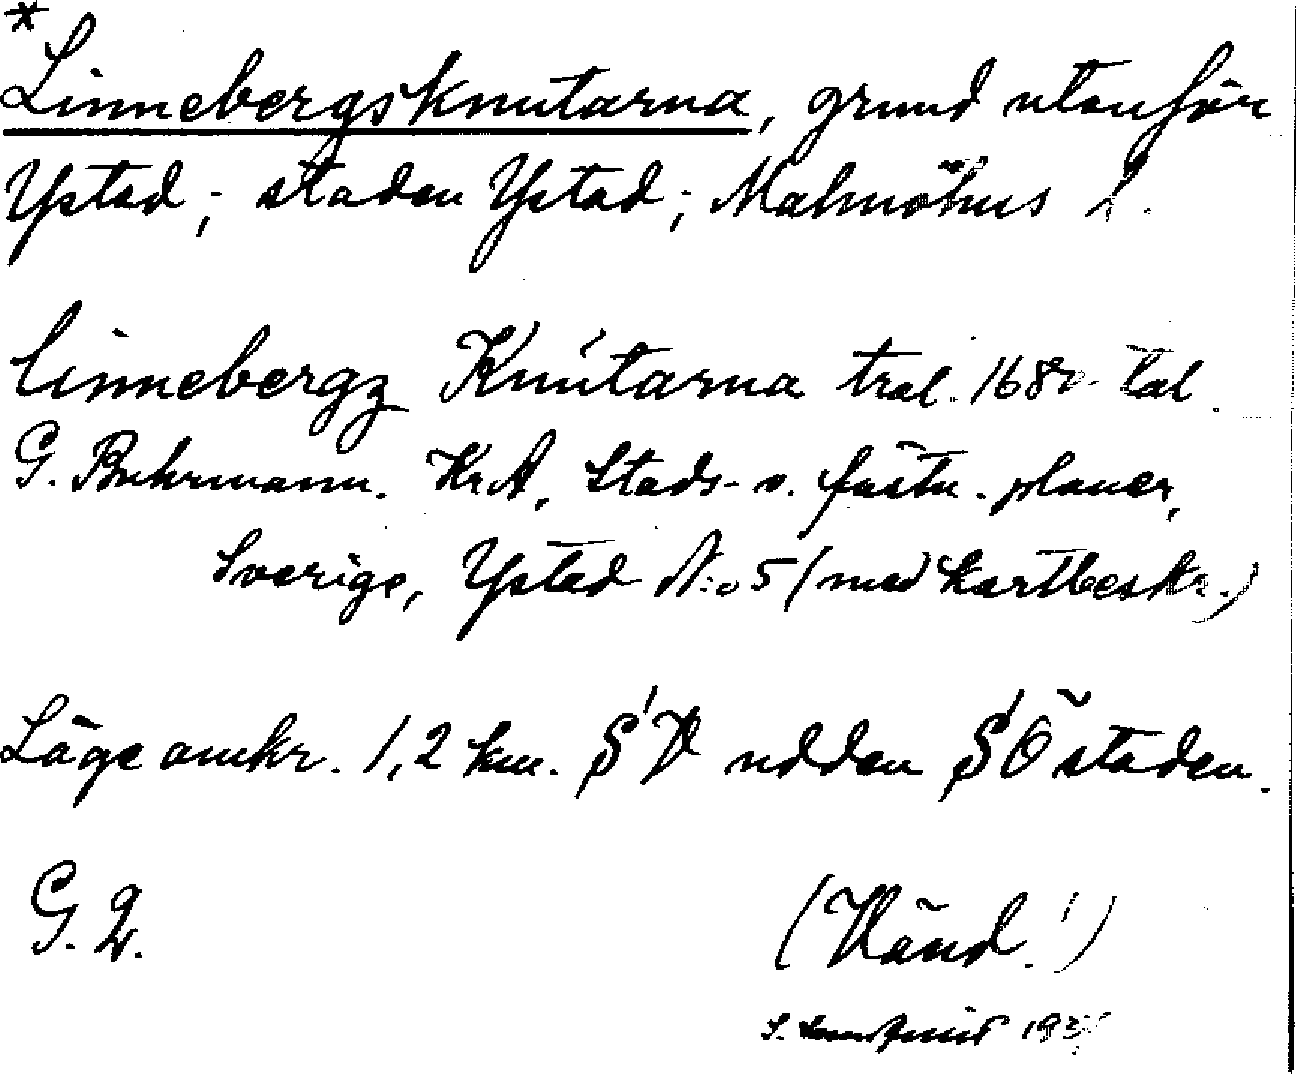 *
Linnebergsknutarna, grund utanför
Ystad; staden Ystad; Malmöhus L.
Linnebergz Knutarna trol. 1680-tal.
G. Buhrmann. KrA, Stads- o. fästn.-planer,
Sverige, Ystad N:o 5 (med kartbeskr.)
Läge omkr. 1,2 km. SV udden SÖ staden.
G. 2.
(Vänd!)
S.